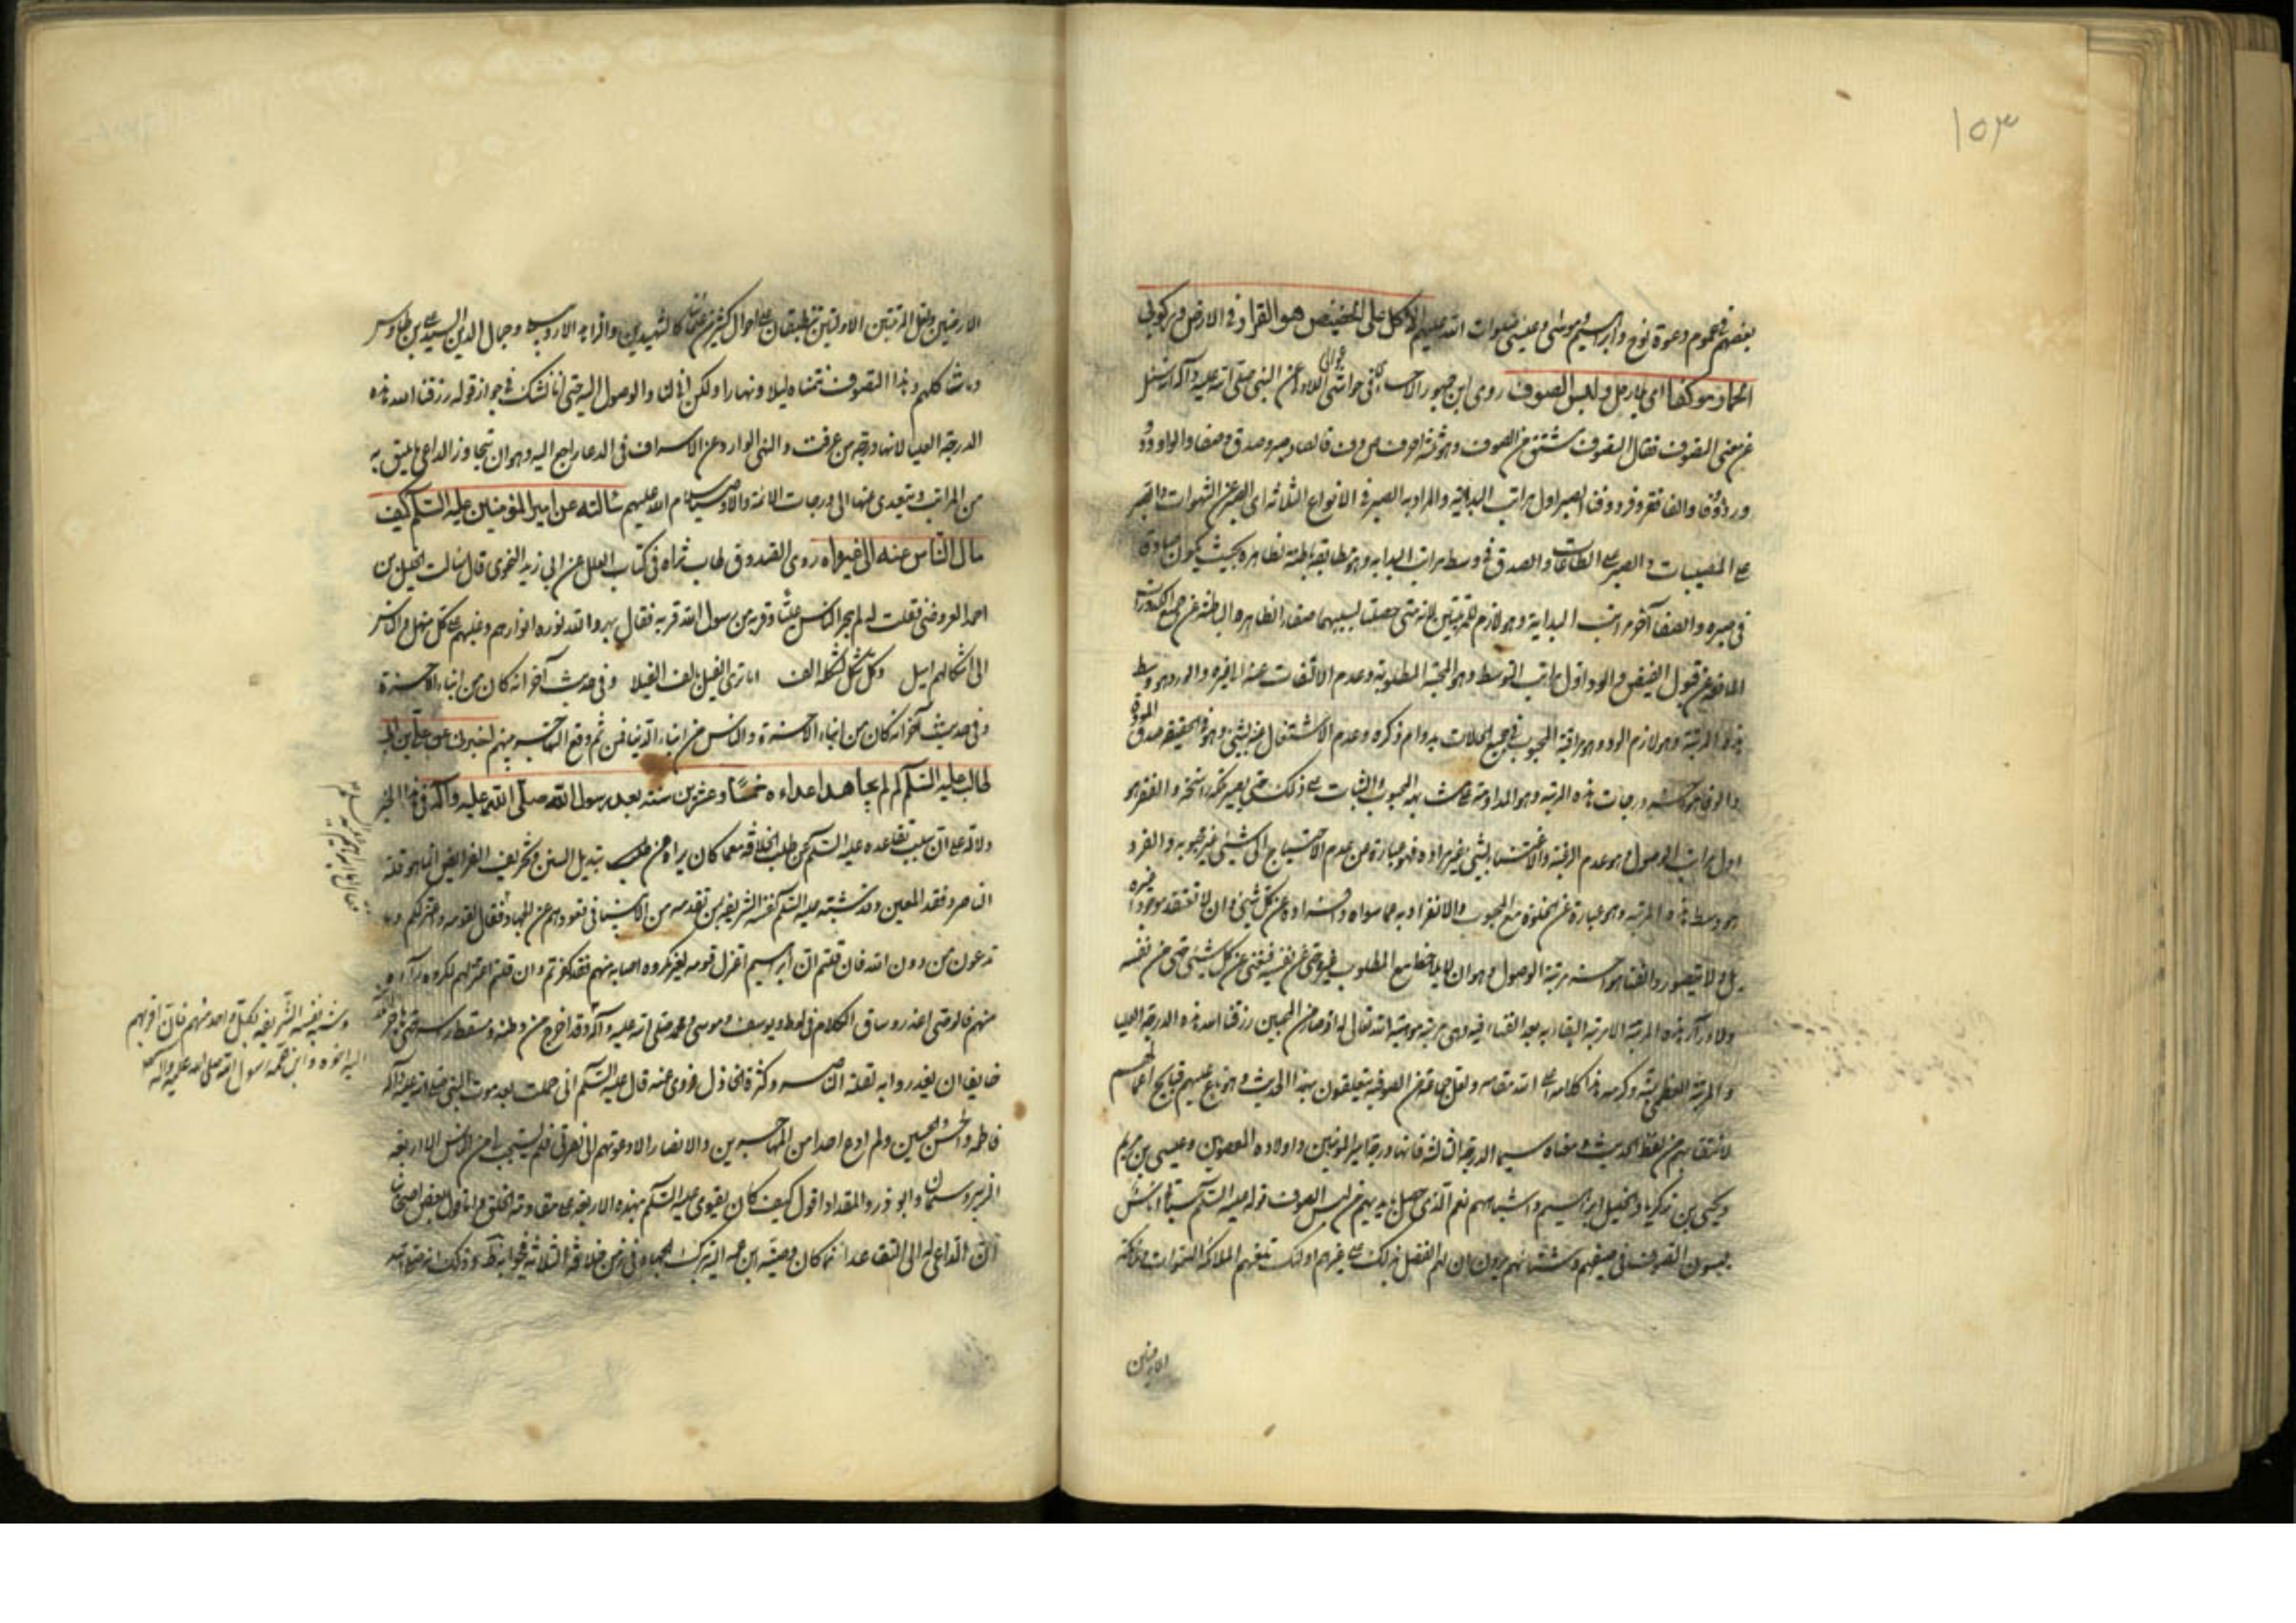 ١٥٣
بعضهم عموم دعوة نوح وابراهيم وموسى وعيسى صلوات الله عليهم الاكل على الحضيض هو القرار في الارض وركوبي
الحمار موكفا اى بلا رحل ولبس الصوف روى ابن جمهور الاحسائى في حواشى غوالى اللئالى عن النبي صلى الله عليه وآله انه سئل
عن معنى التصوف فقال التصوف مشتق من الصوف وهو ثلاثة احرف ص و ف فالصاد صبر وصدق وصفا والواو ود
وورد ووفا والفا فقر وفرد وفنا الصبر اول مراتب البداية والمراد به الصبر في الانواع الثلاثة اى الصبر عن الشهوات والصبر
على المصيبات والصبر على الطاعات والصدق في وسط مراتب البداية وهو مطابقة باطنه لظاهره بحيث يكون صادقا
في صبره والصفا آخر مراتب البداية وهو لازم للمرتبتين لانه متى حصلت بسببهما صفاء الظاهر والباطن عن جميع الكدورات
المانعة عن قبول الفيض والود اول مراتب التوسط وهو المحبة المطلوبة وعدم الالتفات عنه الى غيره والورد هو وسط
هذه المرتبة وهو لازم الود وهو مراقبة المحبوب في جميع الحالات بدوام ذكره وعدم الاشتغال عنه بشئ وهو في الحقيقة صدق المودة
والوفا هو آخر درجات هذه المرتبة وهو المداومة على مشاهدة المحبوب والثبات على ذلك حتى يصير ملكة راسخة والفقر هو
اول مراتب الوصول وهو عدم الرغبة والاعتناء بشئ غير مراده فهو عبارة عن عدم الاحتياج الى شئ غير محبوبه والفرد
هو وسط هذه المرتبة وهو عبارة عن الخلوة مع المحبوب والانفراد به عما سواه وانفراده عن كل شئ وان لا تعتقد موجودا غيره
بل ولا يتصور والفنا هو آخر مرتبة الوصول وهو ان لا يلاحظ مع المطلوب غيره حتى عن نفسه فيفنى عن كل شئ حتى من نفسه
ولا وراء هذه المرتبة الا مرتبة البقاء به بعد الفناء فيه وهى مرتبة موهبة الله تعالى لخواص من المحبين رزقنا الله هذه الدرجة العليا
والمرتبة العظمى بمنه وكرمه هذا كلامه على الله مقامه ولعل جماعة من الصوفية يتعلقون بهذا الحديث وهو ينعى عليهم قبايح اعمالهم
لانتفائهم من لفظ الحديث ومعناه سيما الدرجة الثالثة فانها درجة امير المؤمنين واولاده المعصومين وعيسى بن مريم
ويحيى بن زكريا والخليل ابراهيم واشباههم نعم الذى حصل بايديهم من لبس الصوف قوله عليه السلم سيأتى اناس
يلبسون الصوف في صيفهم وشتائهم يرون ان لهم الفضل بذلك على غيرهم اولئك تلعنهم الملائكة السموات وملائكة
الارضين
الارضين ولعل المرتبتين الاولتين تنطبقان على احوال كثير من علمائنا كالشهيدين واقرانه الاردبيلى وجمال الدين السيد على بن طاوس
وما شاكلهم وهذا التصوف نتمناه ليلا ونهارا ولكن انى لنا والوصول اليه حتى انا نشك في جواز قوله رزقنا الله هذه
الدرجة العليا لانها درجة من عرفت والنهى الوارد عن الاسراف في الدعا راجع اليه وهو ان يتجاوز الداعى ما يليق به
من المراتب ويتعدى منها الى درجات الائمة والاوصياء سلام الله عليهم سالته عن امير المؤمنين عليه السلم كيف
مال الناس عنه الى غيره روى الصدوق طاب ثراه في كتاب العلل عن ابى زيد النحوى قال سالت الخليل بن
احمد العروضى فقلت له لم هجر الناس عليا وقربه من رسول الله قربه فقال بهر والله نوره انوارهم وغلبهم على كل منهل والناس
الى اشكالهم اميل وكل شكل لشكله الف اما ترى الفيل يالف الفيلا وفي حديث آخر انه كان من ابناء الاخرة
وفي حديث آخر انه كان من ابناء الاخرة والناس من ابناء الدنيا فمن ثم وقع التهاجر منهم اخبرنى عن على بن ابى
طالب عليه السلم لم لم يجاهد اعداءه خمسا وعشرين سنة بعد رسول الله صلى الله عليه وآله في هذا الخبر
دلالة على ان سبب تقاعده عليه السلم عن طلب الخلافة معما كان يراه من تبديل السنن وتحريف الفرايض انما هو قلة
الناصر وفقد المعين وقد شبه عليه السلم نفسه الشريفة بمن تقدمه من الانبياء في قعودهم عن الجهاد فقال لقومه واعتزلكم وما
تدعون من دون الله فان قلتم ان ابراهيم اعتزل قومه لغير مكروه اصابه منهم فقد كفرتم وان قلتم اعتزلهم لمكروه رآه
منهم فالوصى اعذر وساق الكلام في لوط ويوسف وموسى ومحمد صلى الله عليه وآله وقد اخرج من وطنه ومسقط راسه حتى هاجر
خايفا ان يغدروا به لقلة الناصر وكثرة الخاذل وروى عنه قال عليه السلم انى حملت بعد موت النبي صلى الله عليه وآله
فاطمة والحسن والحسين ولم ادع احدا من المهاجرين والانصار الا دعوتهم الى نصرتى فلم يستجب لى من الناس الا اربعة
الزبير وسلمان وابو ذر والمقداد اقول كيف كان يقوى عليه السلم بهذه الاربعة على مقاومة الخلق واما قول بعض اصحابنا
ان الداعى له الى التقاعد انما كان وصية ابن عمه اليه بترك الجهاد في زمن خلافة الثلاثة فجوابه ظ وذلك انه صلى الله
وشبه نفسه الشريفة بكل واحد منهم فان اقربهم
اليه اخوه وابن عمه رسول الله صلى الله عليه وآله